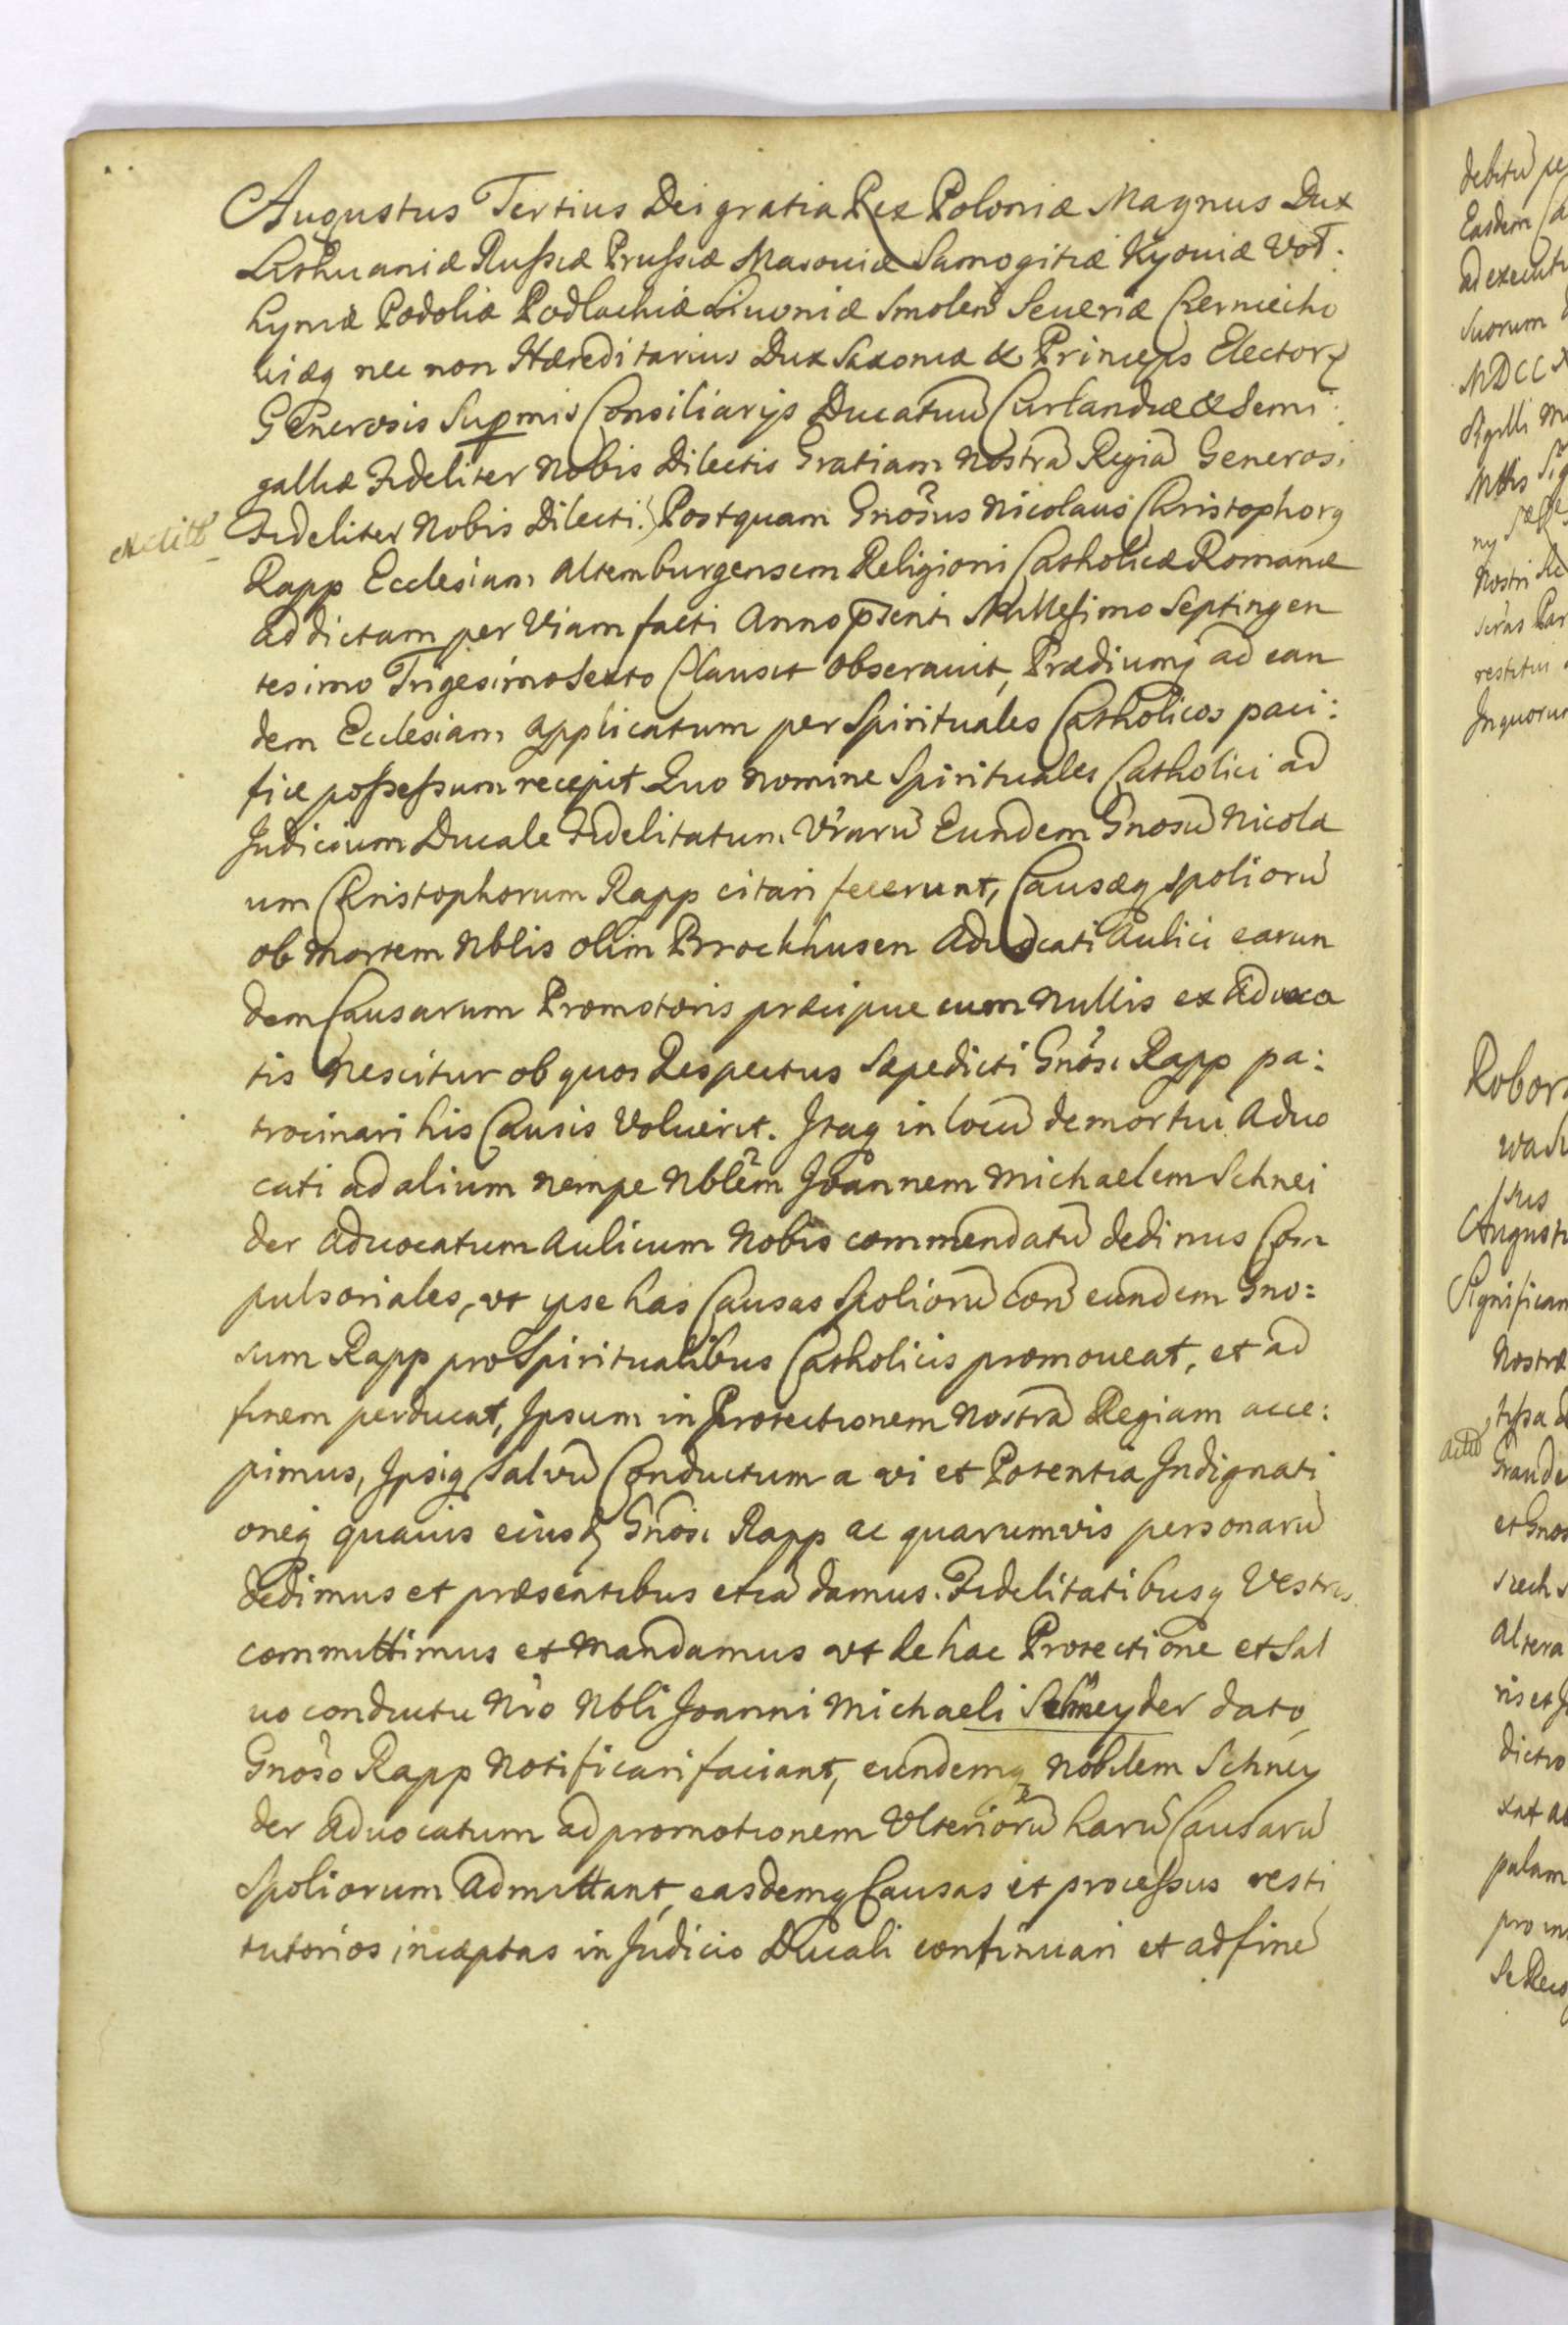 Augustus Tertius Dei gratia Rex Poloniæ Magnus Dux
Lithuaniæ Russiæ Prussiæ Masouiæ Samogitiæ Kyouiæ Vol:
hyniæ Podoliæ Podlachiæ Liuoniæ Smolen̄ Seueriæ Czerniecho
uiæq nec non Hæreditarius Dux Saxoniæ & Princeps Elector
Generosis Supmis Consiliarijs Ducatuū Curlandiæ & Semi:
galliæ Fideliter Nobis Dilectis Gratiam Nostrā Regiā Generosi
Fideliter Nobis Dilecti. Postquam Gnōsus Nicolaus Christophorq
Rapp Ecclesiam Altemburgensem Religioni Catholicæ Romanæ
addictam per Viam facti Anno p̄senti Millesimo Septingen
tesimo Trigesimo Sexto Clausit obserauit, Prædiumq ad ean
dem Ecclesiam applicatum per Spirituales Catholicos paci:
fice possessum recepit Quo Nomine Spirituales Catholici ad
Judicium Ducale Fidelitatum Vrarū Eundem Gnosū Nicola
um Christophorum Rapp citari fecerunt, Causæq spoliorū
ob mortem Nblis olim Brockhusen Aduocati Aulici earun
dem Causarum Promotoris præcipue cum Nullis ex Aduoca
tis Nescitur ob quos Respectus Sæpedicti Gnōsi Rapp pa:
trocinari his Causis Voluerit. Itaq in locū demortui Aduo
cati ad alium nempe Nblēm Joannem Michaelem Schnei
der Aduocatum Aulicum Nobis commendatū dedimus Com
pulsoriales, vt ipse has Causas Spoliorū con̄ eundem Gno=
sum Rapp pro Spiritualibus Catholicis promoueat, et ad
finem perducat, Ipsum in Protectionem Nostrā Regiam acce:
pimus, Ipsiq Salvū Conductum a vi et Potentia Indignati
oneq quauis eiusd Gnōsi Rapp ac quarumvis personarū
Dedimus et præsentibus etiā damus. Fidelitatibusq Vestris
committimus et Mandamus vt de hac Protectione et Sal
uo conductu Nr̄o Nbli Joanni Michaeli Schneyder dato,
Gnōso Rapp Notificari faciant, eundemq Nobilem Schney
der Aduocatum ad promotionem Vlteriorū harū Causarū
Spoliorum Admittant, easdemq Causas et processus resti
tutorios incæptas in Judicio Ducali continuari et ad finē
debitū
Easdem
suorum
MDCC
Sigilli
Nostri
restitui
Augustu
Nostræ
Altera
palam